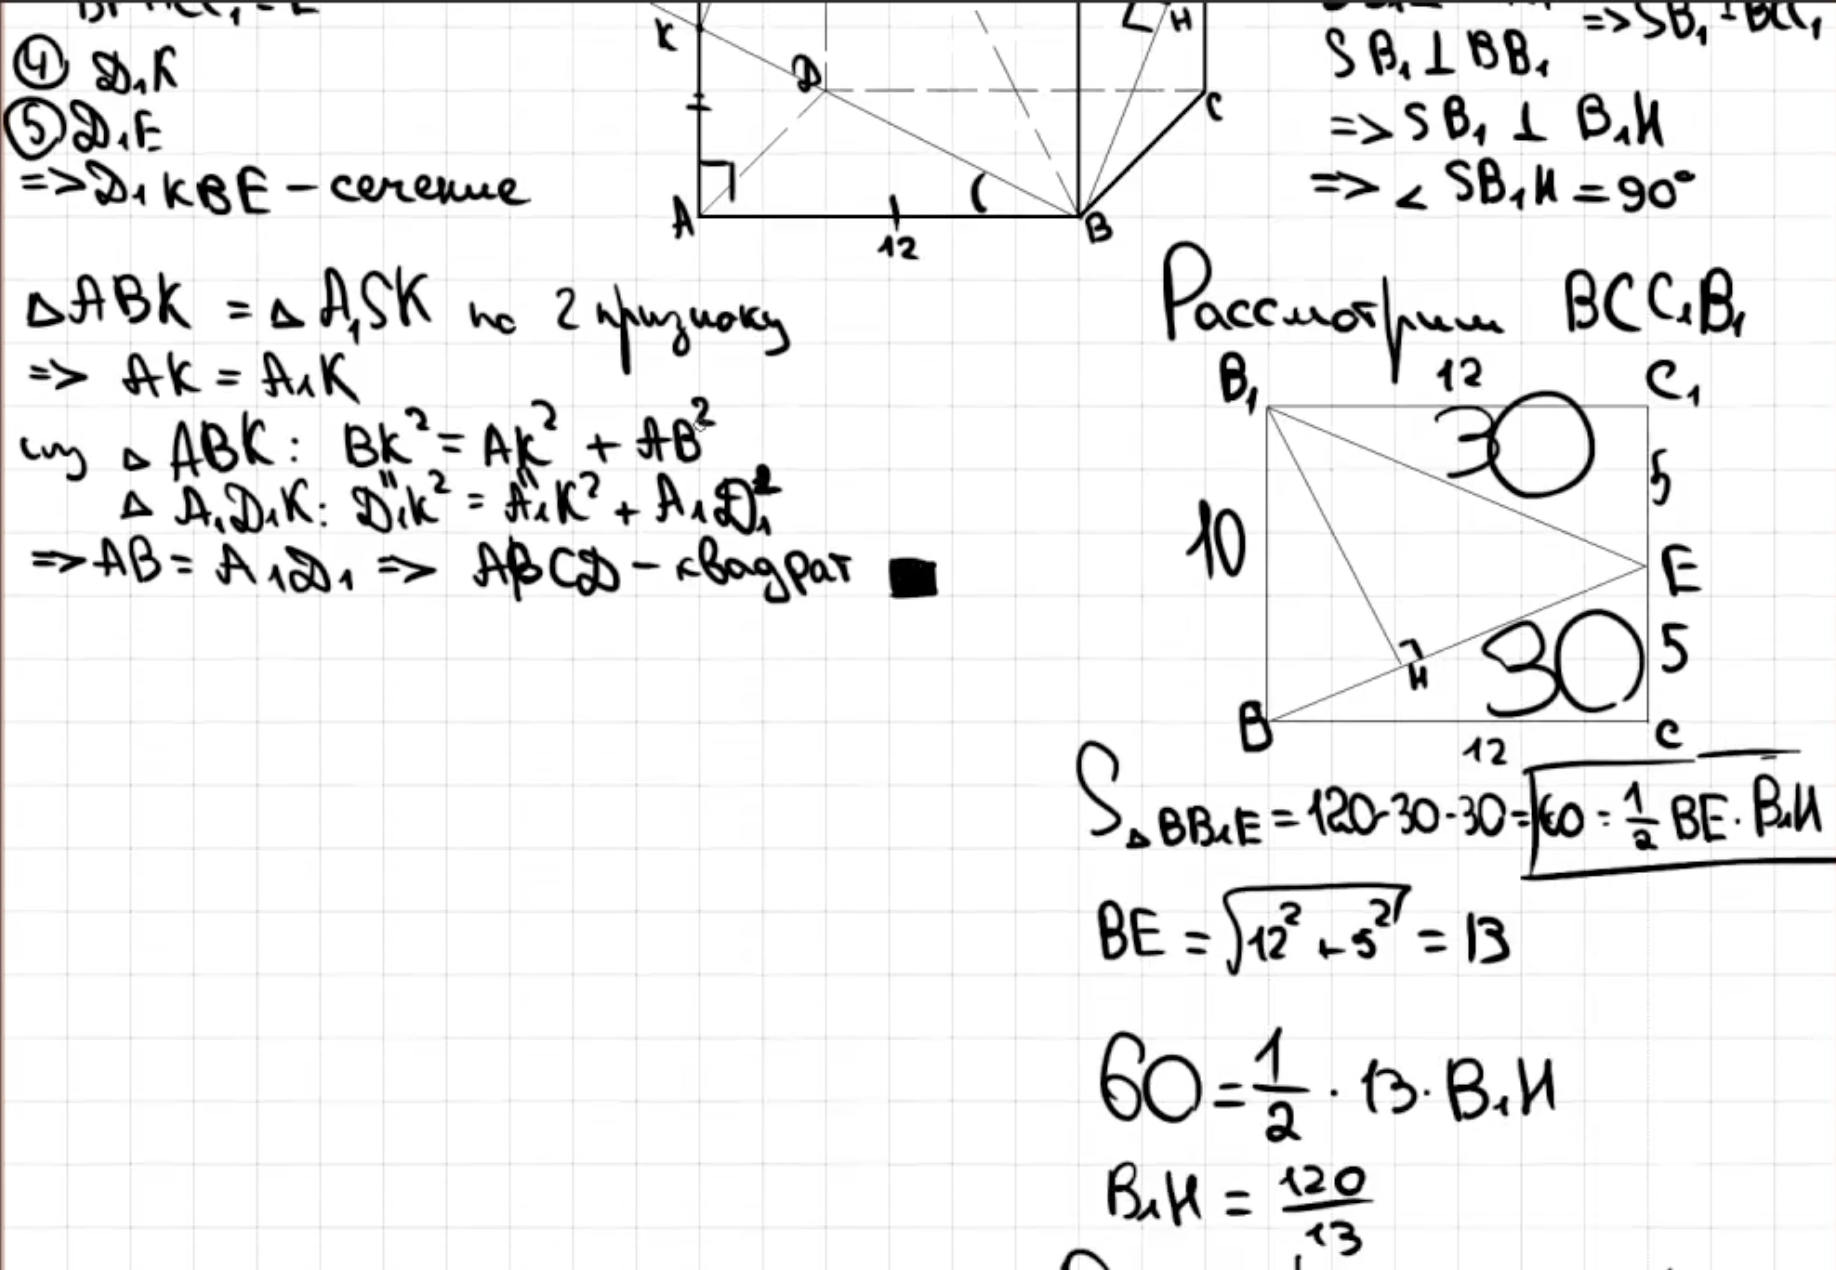 ④ D₁K
⑤ D₁E
=> D₁KBE – сечение
△ABK = △A₁SK по 2 признаку
=> AK = A₁K
из △ABK: BK² = AK² + AB²
△A₁D₁K: D₁K² = A₁K² + A₁D₁²
=> AB = A₁D₁ => ABCD – квадрат ■
K
D
H
C
A
B
12
=> SB₁ ⊥ BCC₁
SB₁ ⊥ BB₁
=> SB₁ ⊥ B₁H
=> ∠SB₁H = 90°
Рассмотрим BCC₁B₁
B₁ 12 C₁
30
5
10
E
H
30
5
B
12
C
S△BB₁E = 120-30-30 = 60 = 1/2 BE · B₁H
BE = √12² + 5² = 13
60 = 1/2 · 13 · B₁H
B₁H = 120/13